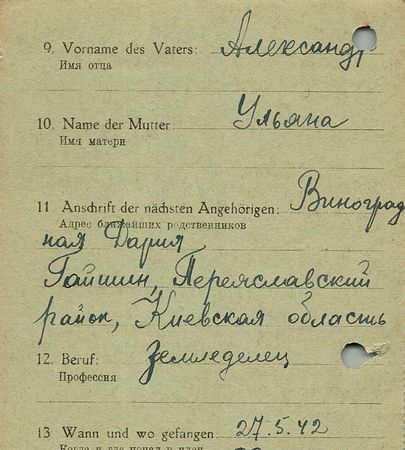 9. Vorname des Vaters: Александр
Имя отца
10. Name der Mutter: Ульяна
Имя матери
11 Anschrift der nächsten Angehörigen: Виноград
Адрес ближайших родственников
ная Дария
Гайшин, Переяславский
район, Киевская область
12. Beruf: Земледелец
Профессия
13 Wann und wo gefangen: 27.5.42
Когда и где попал в плен